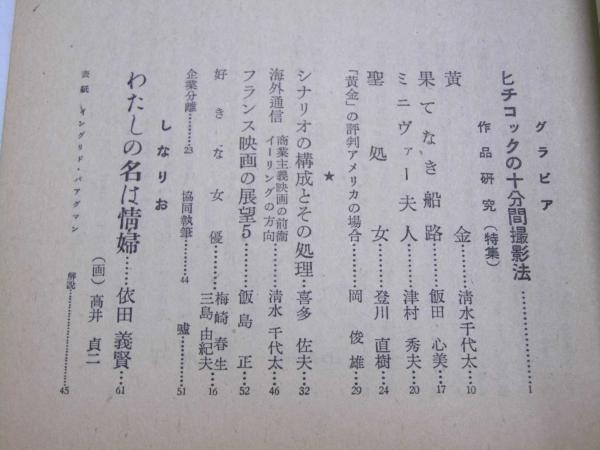 グラビア
ヒチコックの十分間撮影法……1
作品研究(特集)
黄金……清水千代太…10
果てなき船路……飯田心美…17
ミニヴァー夫人……津村秀夫…20
聖処女……登川直樹…24
「黄金」の評判アメリカの場合……岡俊雄…29
★
シナリオの構成とその処理…喜多佐夫…32
海外通信 商業主義映画の前衛 イーリングの方向…清水千代太…46
フランス映画の展望5……飯島正…52
好きな女優…梅崎春生 三島由紀夫…16
企業分離……23 協同執筆……44 嘘……51
しなりお
わたしの名は情婦……依田義賢…61
(画)高井貞二
表紙 イングリド・バアグマン 解説……45